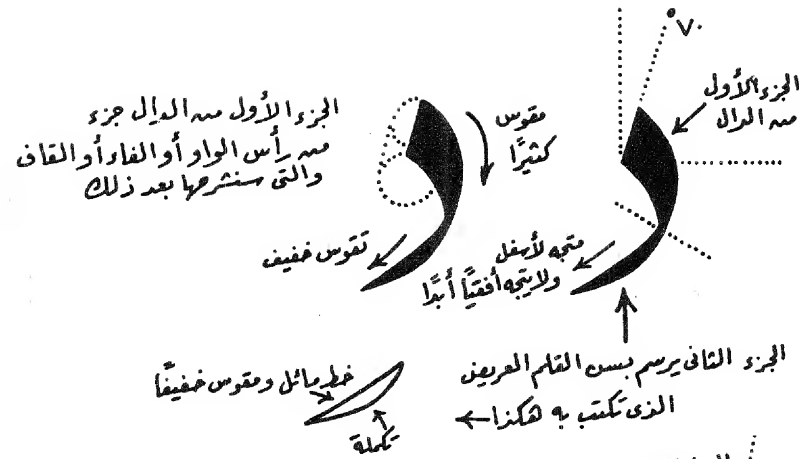 ٧٠°
الجزء الأول
من الدال
مقوس
كثيرًا
الجزء الأول من الدال جزء
من رأس الواو أو الفاء أو القاف
والتى سنشرحها بعد ذلك
متجه لأسفل
ولا يتجه أفقيًا أبدًا
تقوس خفيف
الجزء الثانى يرسم بسن القلم العريض
الذى تكتب به هكذا
خط مائل ومقوس خفيفًا
تكملة